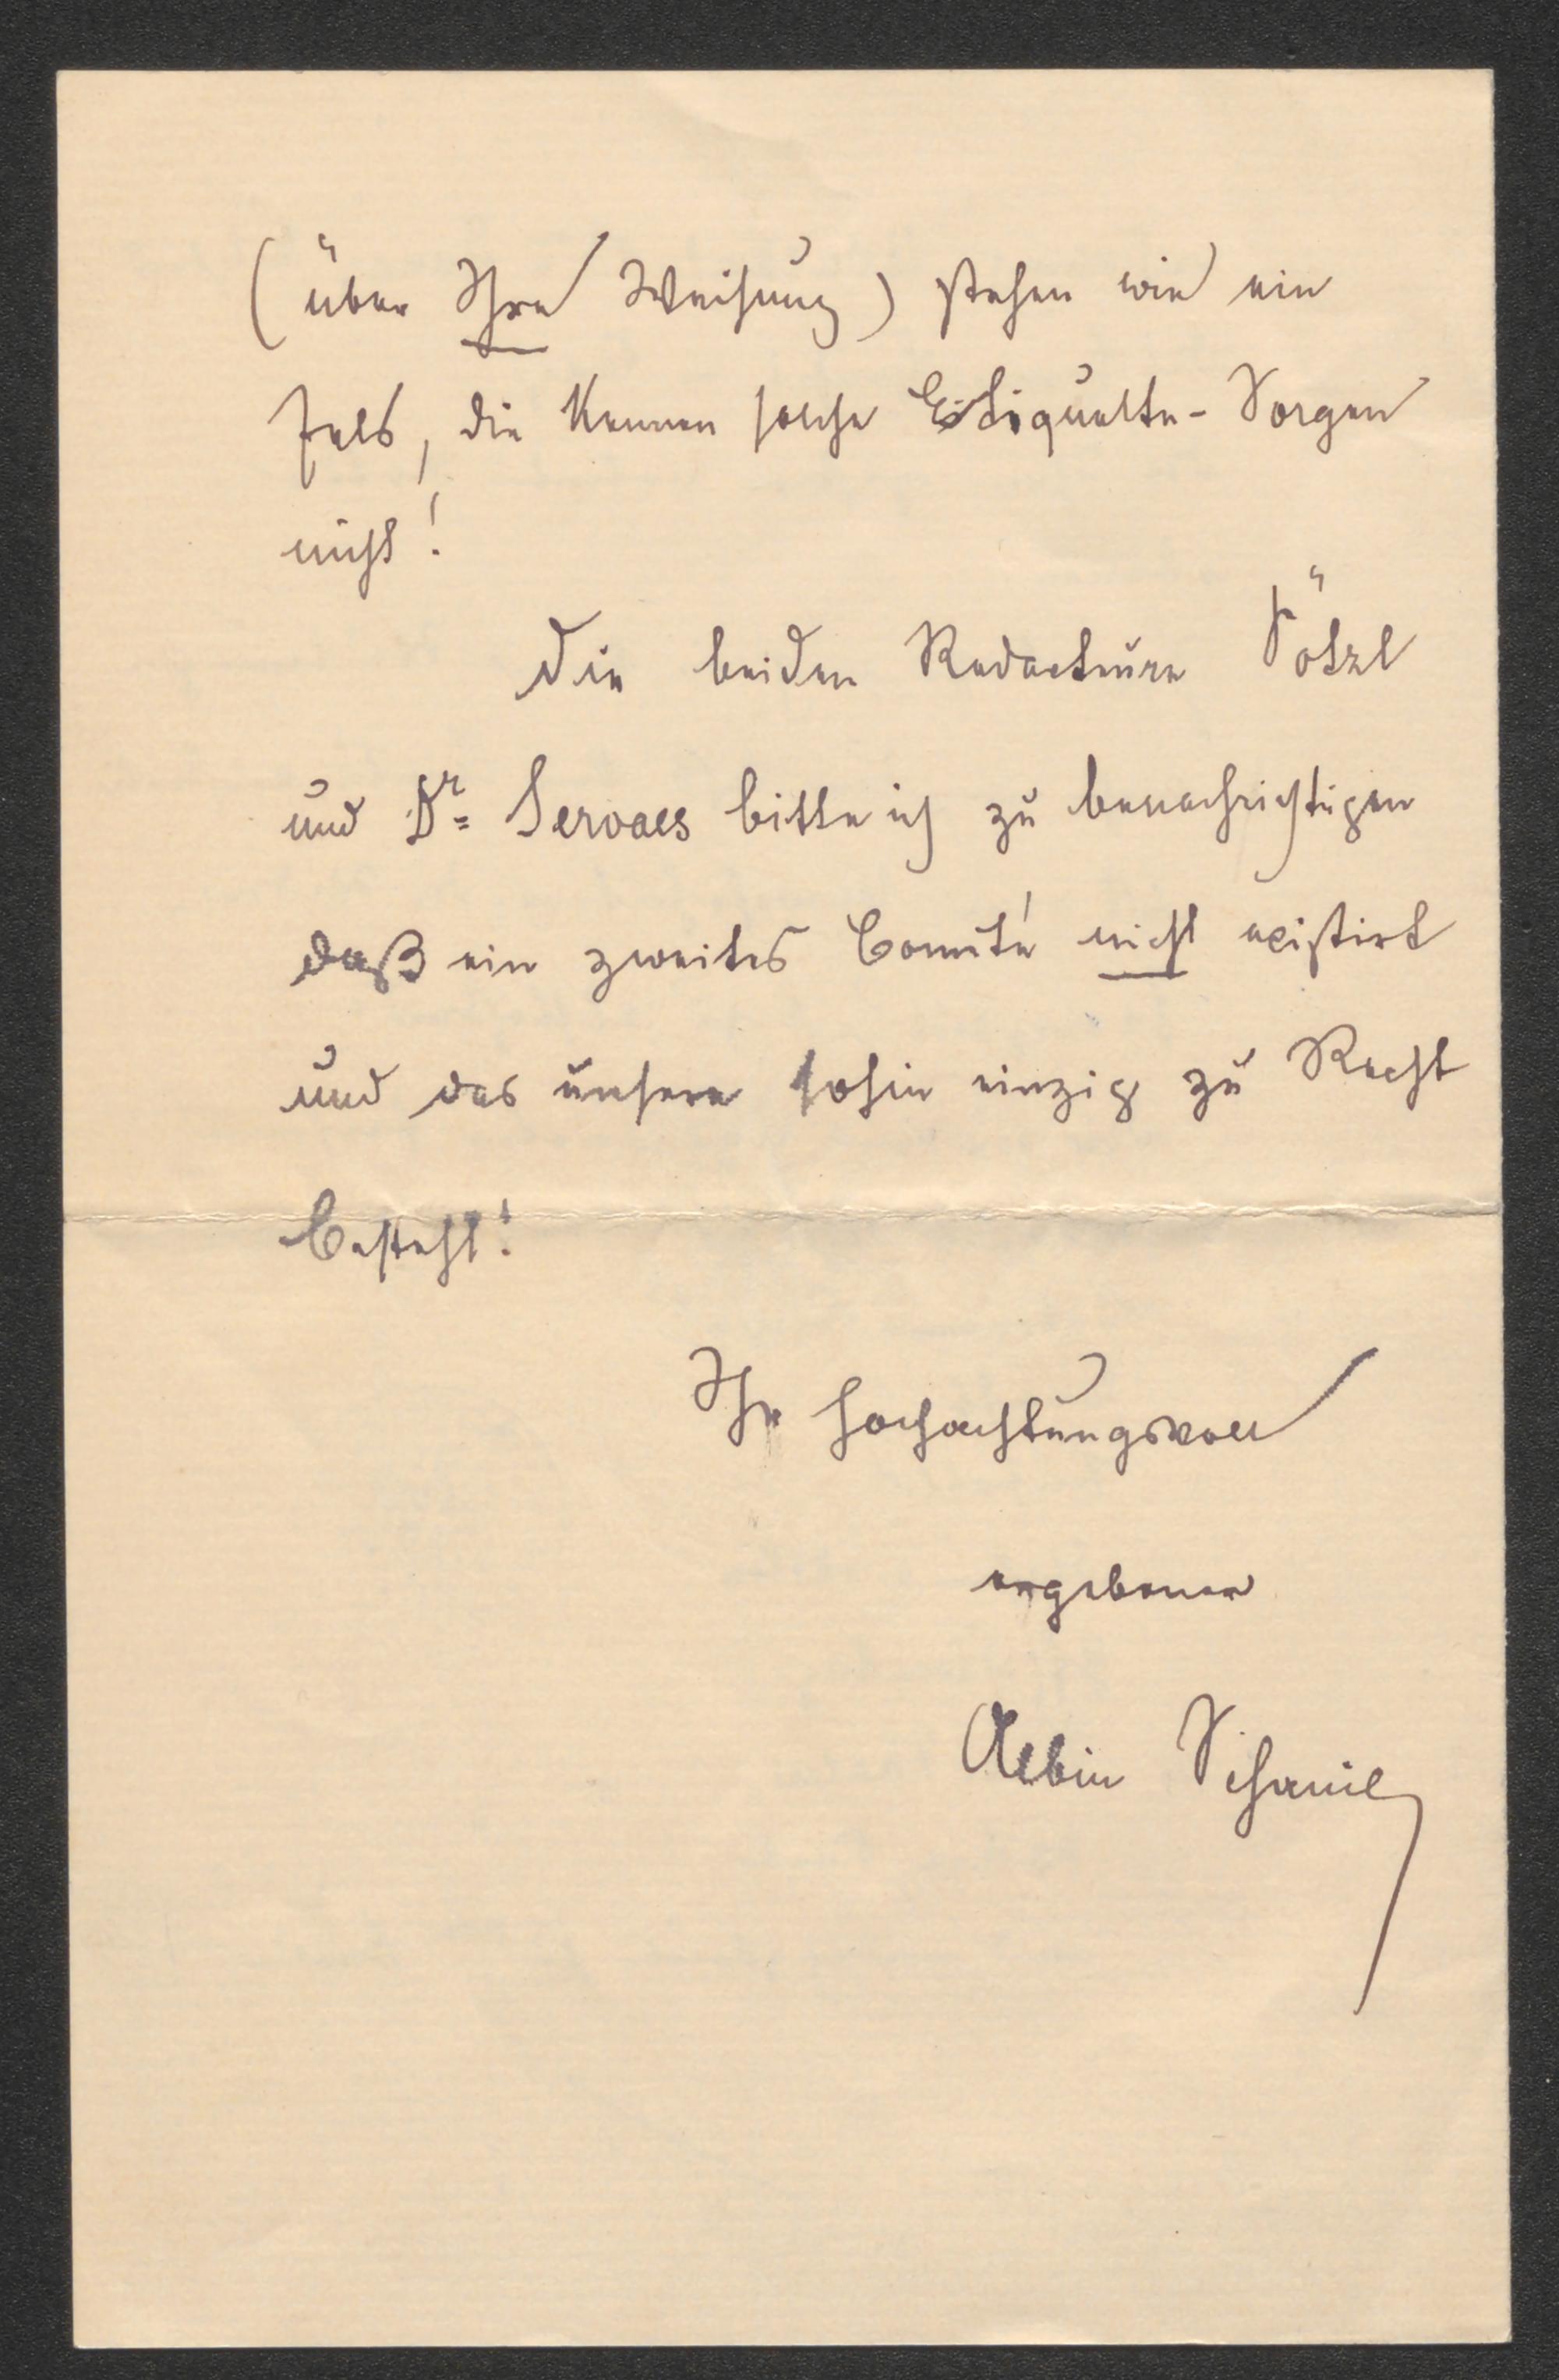 (über Ihre Weisung) stehen wie ein
Fels, die kennen solche Etiquette-Sorgen
nicht!
Die beiden Redacteure Pötzl
und Dr. Servaes bitte ich zu benachrichtigen
daß ein zweites Comité nicht existirt
und das unsere sohin einzig zu Recht
besteht!
Ihr hochachtungsvoll
ergebener
Albin